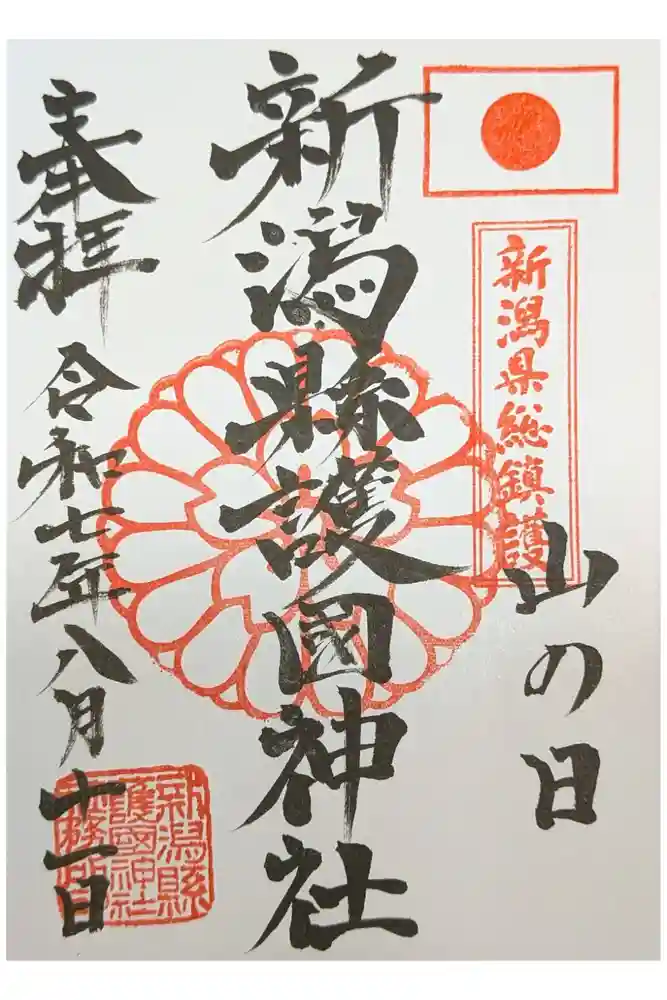 新潟県総鎮護
山の日
新潟縣護國神社
奉拝
令和七年八月十一日
新潟縣
護國神社
社務所